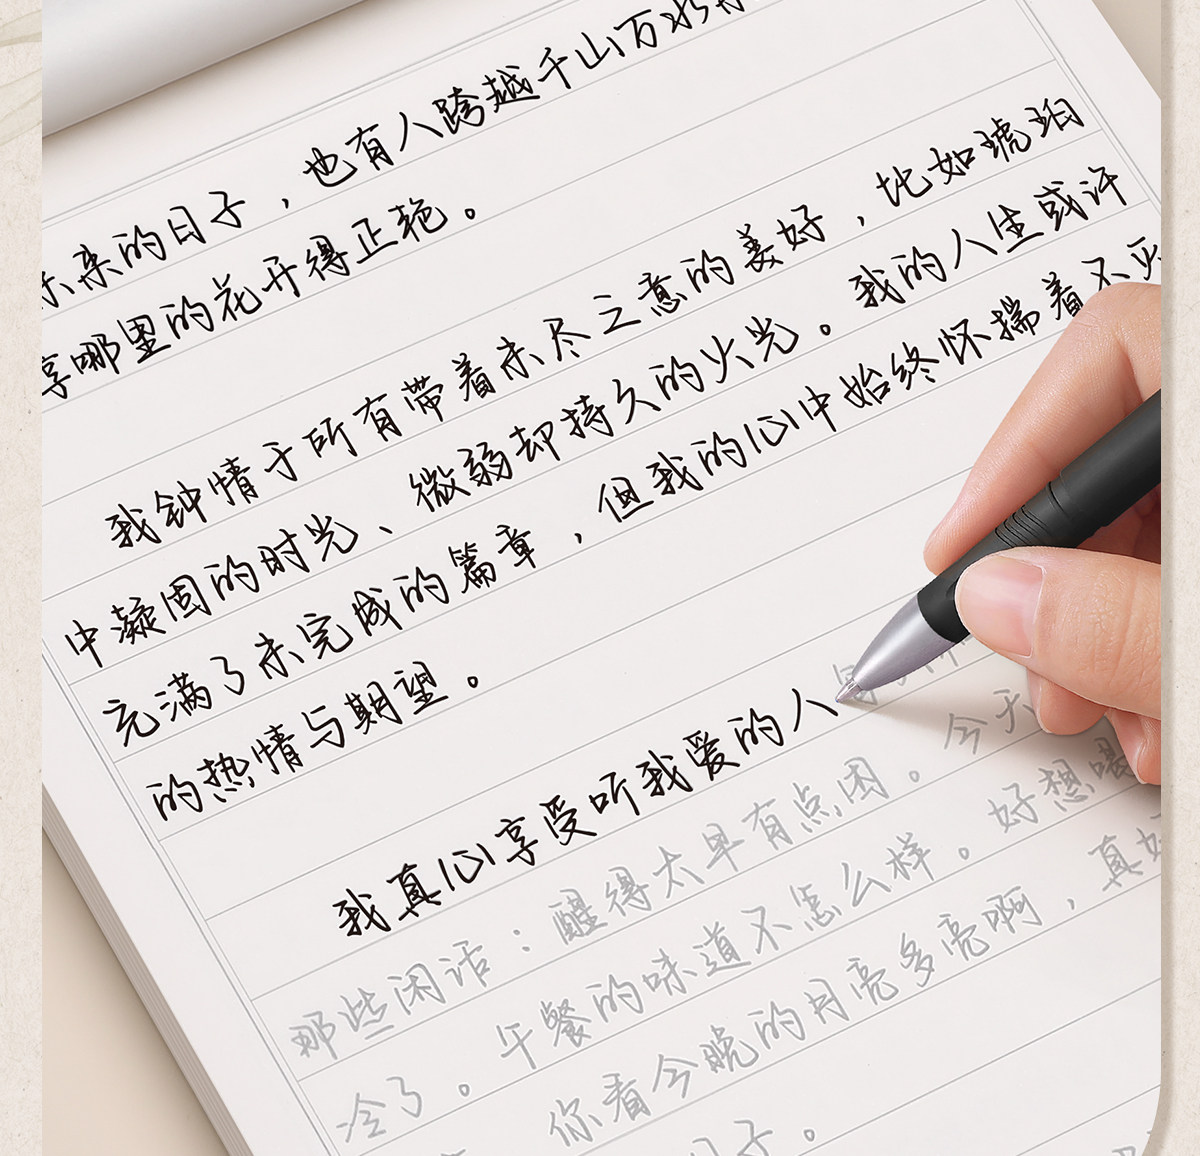 未来的日子，也有人跨越千山万水
享哪里的花开得正艳。
我钟情于所有带着未尽之意的美好，比如琥珀
中凝固的时光、微弱却持久的火光。我的人生或许
充满了未完成的篇章，但我的心中始终怀揣着不灭
的热情与期望。
我真心享受听我爱的人
那些闲话：醒得太早有点困。今天
冷了。午餐的味道不怎么样。好想
你看今晚的月亮多亮啊，真好
日子。